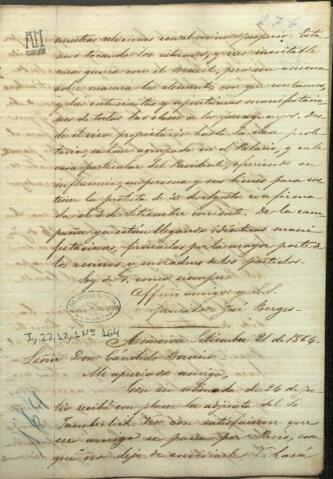 276
nuestras relaciones con el vecino Imperio. Esta
mos tocando los estremos, y es inevitable
una guerra con el Brasil, pero sin
sobre manera los elementos con que contamos,
y las entusiastas y espontaneas manifestacio
nes de todas las clases de los paraguayos. Des
de el rico propietario hasta la clase prole
taria se han agrupado en el Palacio, y en la
casa particular del Presidente, ofreciendo su
su persona y sus bienes para sos
tener la protesta de 30 de Agosto confirma
da el 3 de Setiembre corriente. De la cam
paña ya estan llegando identicas mani
festaciones, firmadas por la mayor parte de
los vecinos y moradores de los partidos.
Soy de V. como siempre
Affmo amigo y S. S.
José Berges
I,22,12,1 Nº 164
Asuncion Setiembre 21 de 1864.
Señor Don Cándido Bareiro
Mi apreciado amigo,
Con su estimada de 24 de Ju
lio recibí con placer la adjunta del Sr
Tamberlick. Veo con satisfaccion que
ese amigo se por Paris, con
que no deja de
164